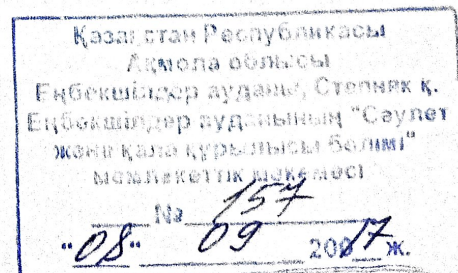 Қазақстан Республикасы
Ақмола облысы
Еңбекшілдер ауданы, Степняк қ.
Еңбекшілдер ауданының "Сәулет
және қала құрылысы бөлімі"
мемлекеттік мекемесі
№ 157
"08" 09 20017 ж.